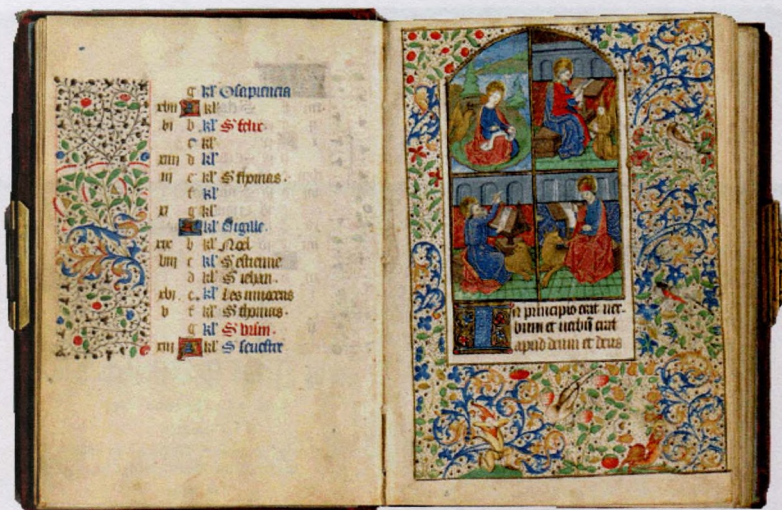 g kl' O sapiencia
xvii A kl'
vi b kl' S' felix
c kl'
xiiii d kl'
iii e kl' S' thomas.
f kl'
xi g kl'
A kl' Vigille.
xix b kl' Noel
viii c kl' S' estienne
d kl' S' iehan.
xvi. e. kl' Les innocens
v f kl' S' thomas.
g kl'
xiii A kl' S' seuestre
In principio erat ver-
bum et verbũ erat
apud deum et deus